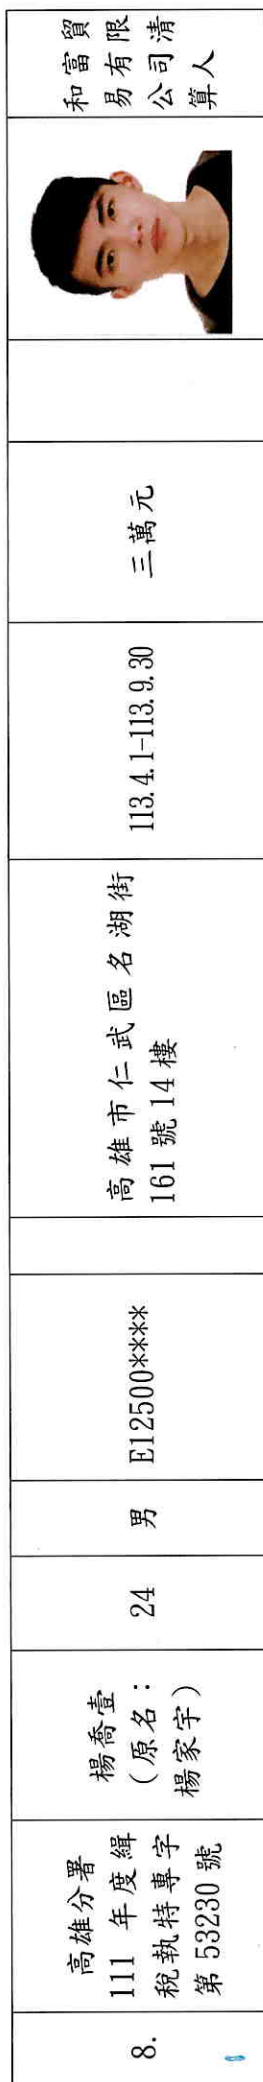 8.
高雄分署
111 年度緝
稅執特專字
第 53230 號
楊喬壹
(原名:
楊家宇)
24
男
E12500****
高雄市仁武區名湖街
161 號 14 樓
113.4.1-113.9.30
三萬元
和富貿
易有限
公司清
算人